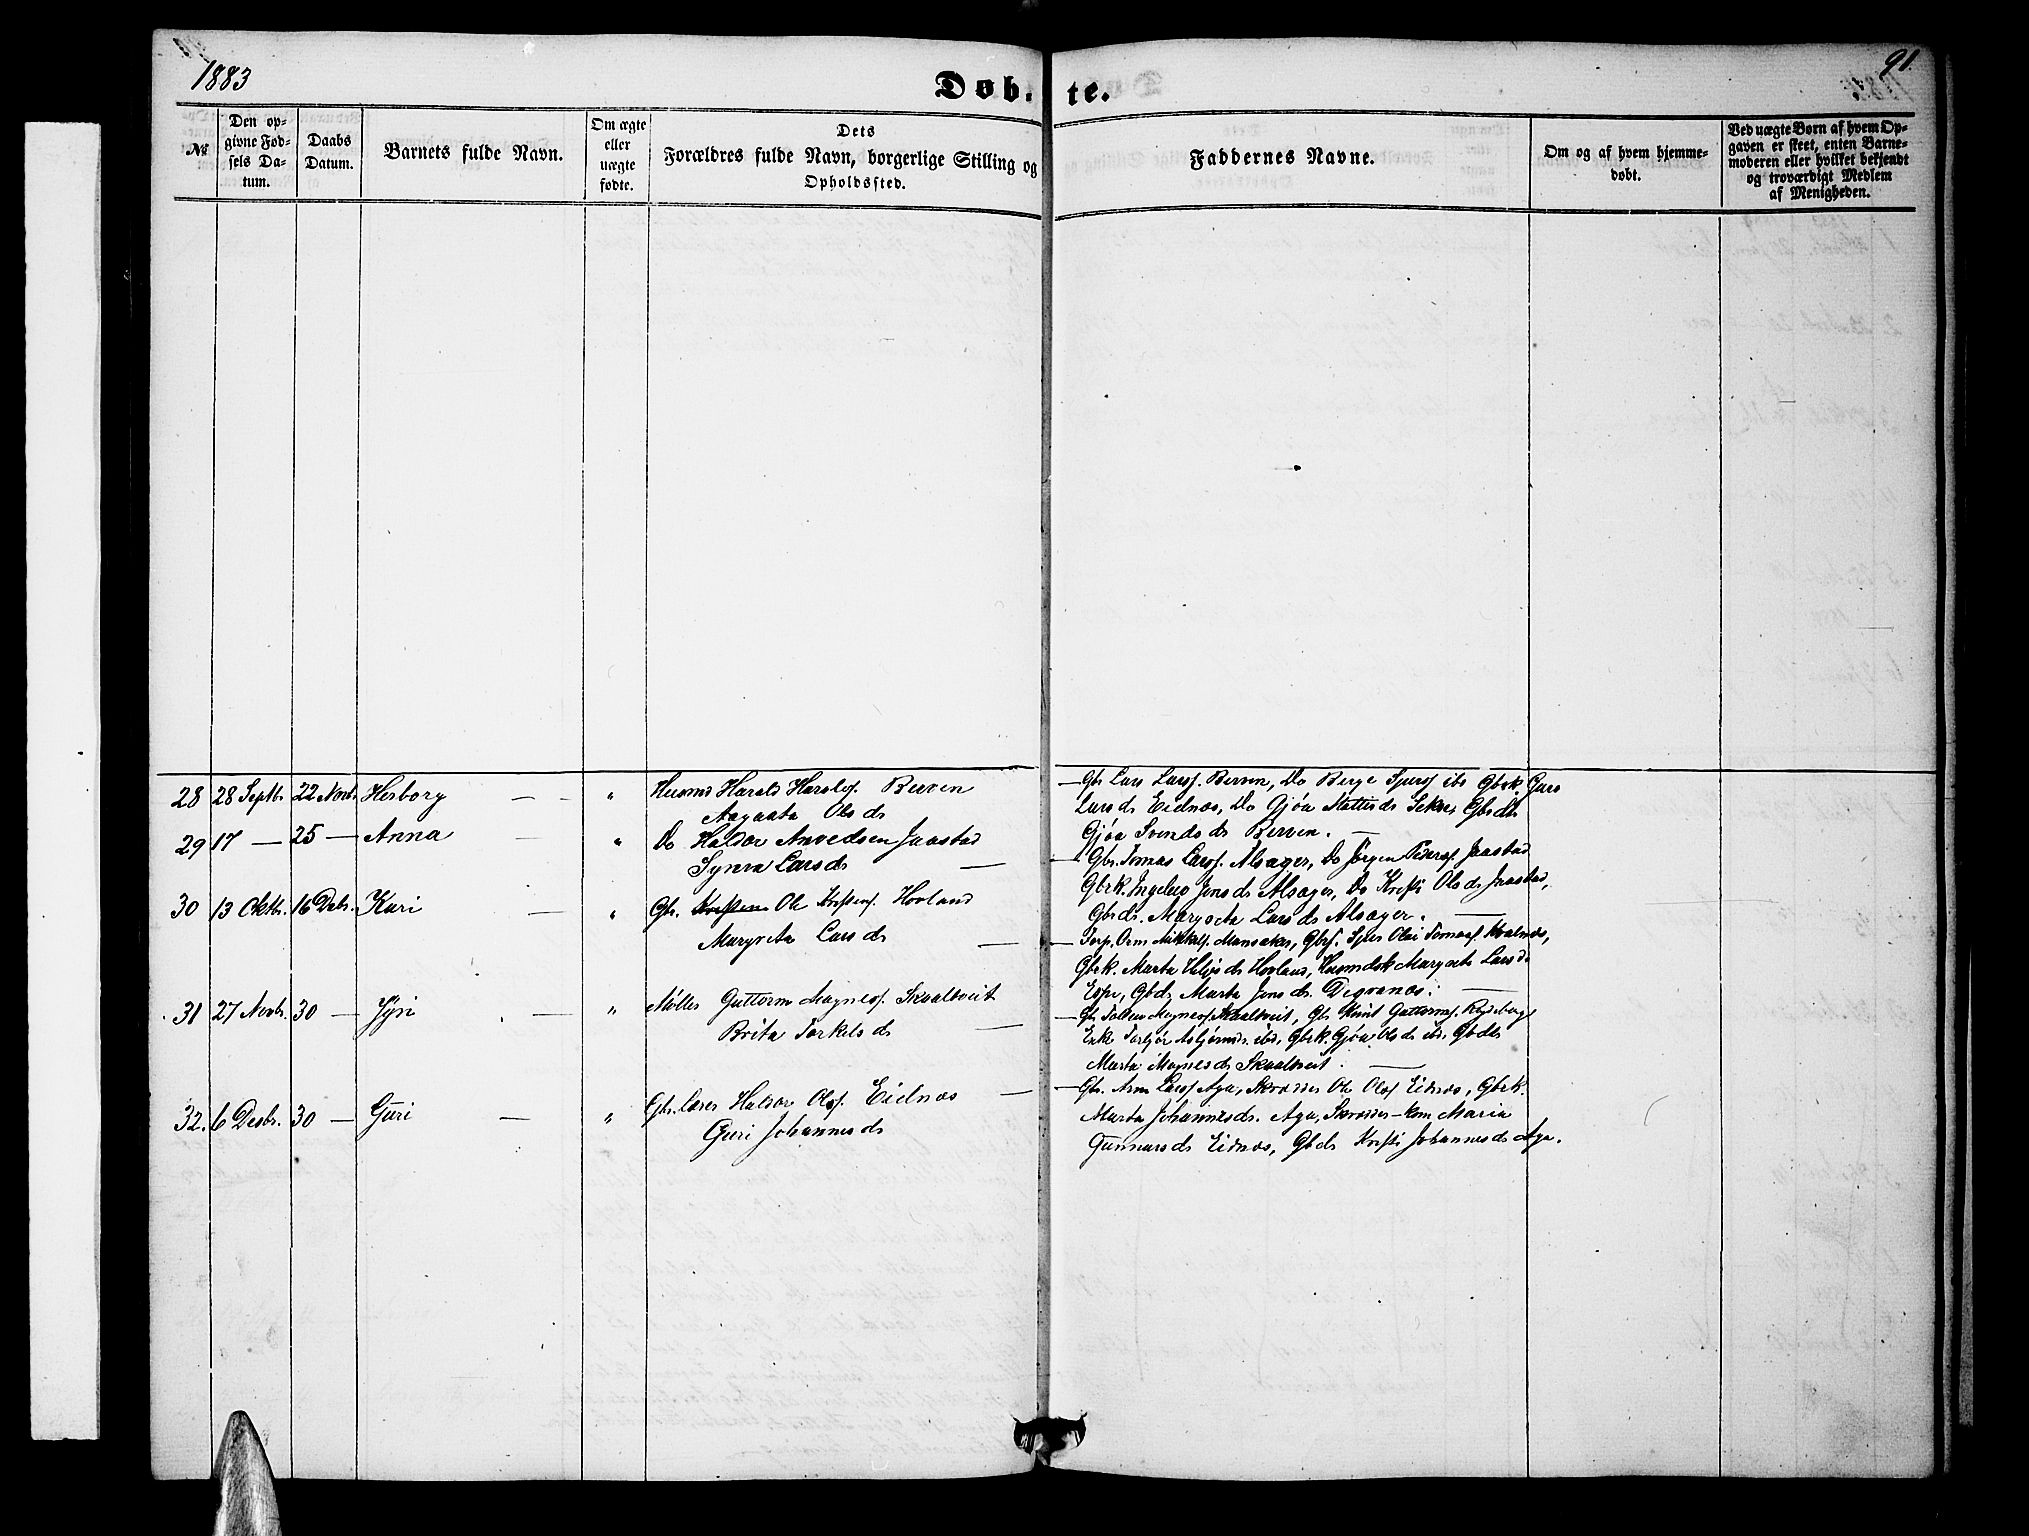 1883
91.
Døb-te.
№
Den op-
givne Fød-
sels Da-
tum.
Daabs
Datum.
Barnets fulde Navn.
Om ægte
eller
uægte
fødte.
Dets
Forældres fulde Navn, borgerlige Stilling og
Opholdssted.
Faddernes Navne.
Om og af hvem hjemme-
døbt.
Ved uægte Børn af hvem Op-
gaven er skeet, enten Barne-
moderen eller hvilket bekjendt
og troværdigt Medlem
af Menigheden.
28 28 Septbr 22 Novbr Herborg — „ Husmd Harald Haralds. Berven
Aagaata Olsdr
— Gbr Lars Larss. Berven, Do Berge Sjurss ibd Gbrk. Guro
Larsdr Eidnæs, Do Gjøa Mattisdr Sekse, Gbrdtr
Gjøa Svendsdr Berven. —
29 17 — 25 — Anna — „ Do Haldor Amvedsen Jaastad
Synva Larsdr —
— Gbr. Tomas Larss. Alsager, Do Jørgen Peders. Jaastad
Gbrk. Ingeleiv Jensdr Alsager, Do Kristi Olsdr Jaastad,
Gbrdr. Margreta Larsdr Alsager. —
30 13 Oktbr. 16 Debr. Kari — „ Gbr. Kristen Ole Kristens. Hovland
Margreta Larsdr —
— Orm Mikkels. Mansaker, Gbrs. Sjur Olai Tomass Kvalnæs,
Gbrk. Marta Helgesdr Hovland, Husmdsk Margreta Larsdr
Espe, Gbdr Marta Jonsdr. Degranæs. —
31 27 Novbr. 30 — Jyri — „ Møller Guttorm Magness. Skaaltveit
Brita Torkelsdr —
— Gbr Magness. Skaaltveit, Gbr Knut Guttorms.
Enke Torbjør Asbjørnsdr. ibd, Gbrk. Gjøa Olsdr ibd, Gbrdtr
Marta Magnesdr Skaaltveit. —
32. 6 Desbr. 30 — Guri — „ Gbr. Lærer Haldor Ols. Eidnæs —
Guri Johannesdr
— Gbr. Arne Larss Aga, Skræder Ole Olss Eidnæs, Gbrk.
Marta Johannesdr. Aga, Skræder-kone Maria
Gunnarsdr Eidnæs, Gbdr Kristi Johannesdr Aga.